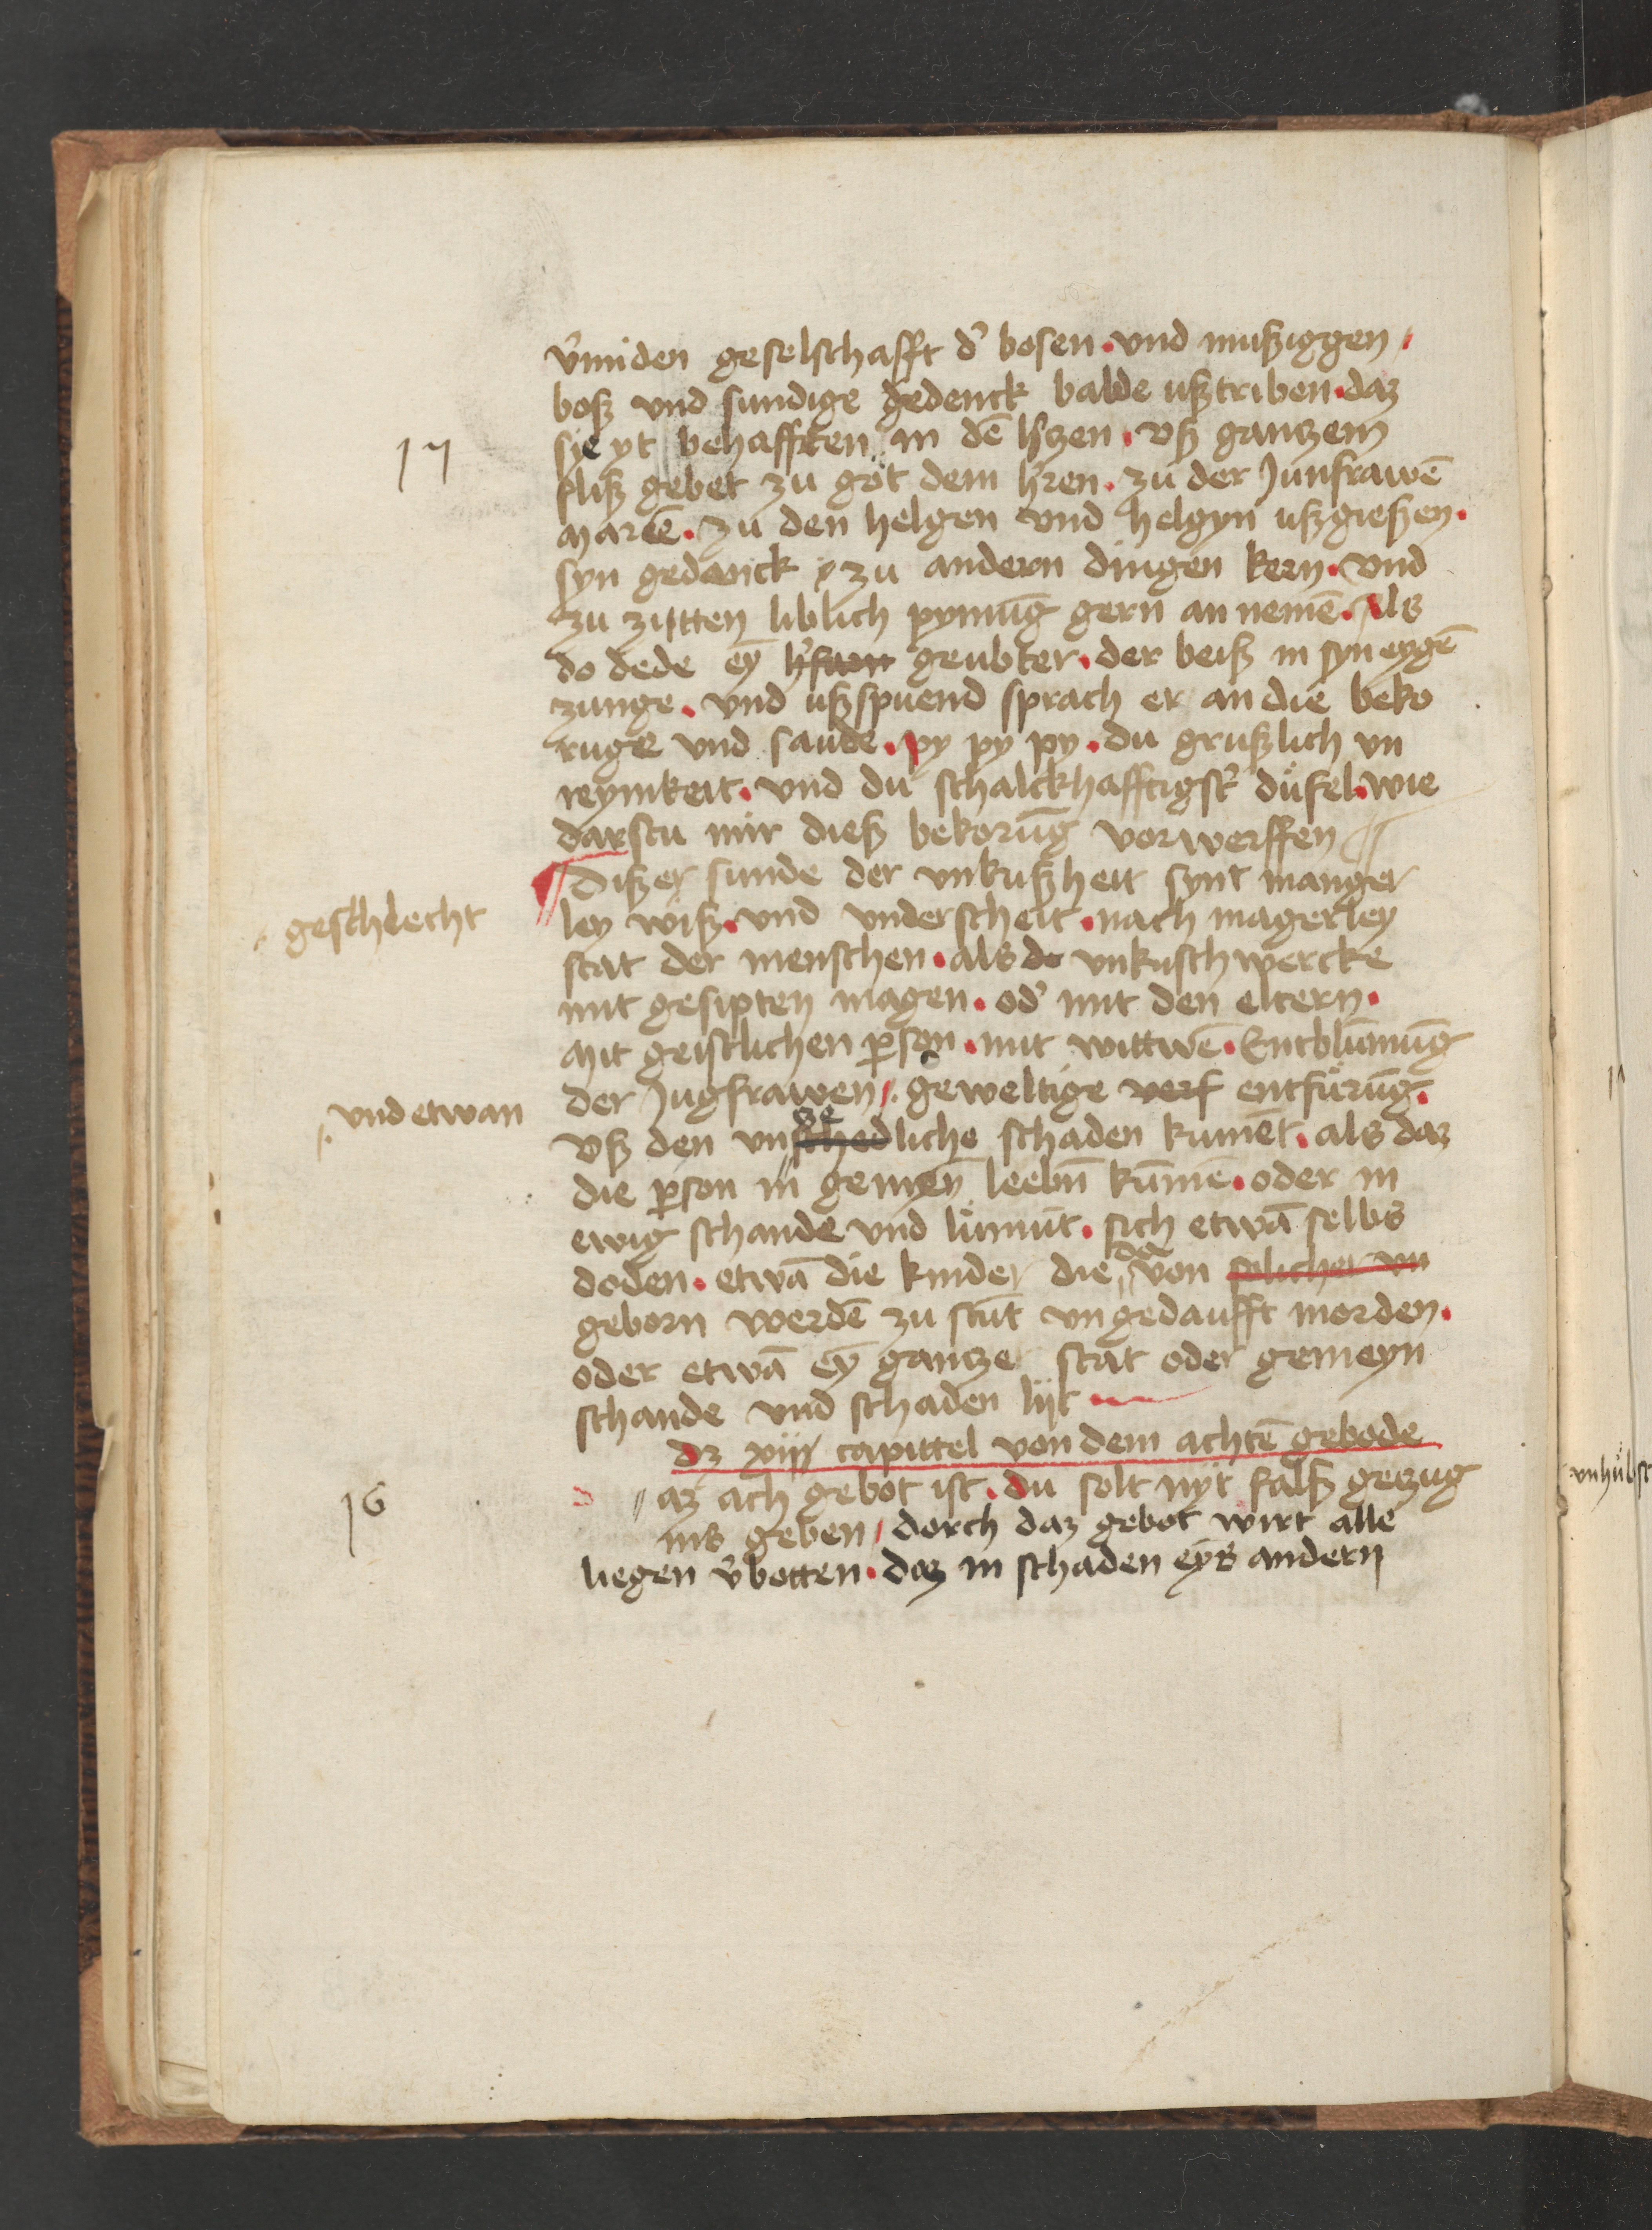 v̾miden geselschafft d̾ bosen · vnd mußiggen /
boß vnd sundige gedenck balde ußtriben · daz
sie yt behafften in dē h̾tzen · vß gantzem
17
fliß gebet zu got dem h̾ren · zu der Junfrawē
Mareē · zu den helgen vnd helgyn ußgießen ·
syn gedanck zu andern dingen kern · vnd
zu zitten liblich pynnūg gern an nemē · Als
do dede eȳ geubter · der beiß in syn eygē
zunge · vnd ußspuend sprach er an die beko
rūge vnd saude · py py py · du grußlich vn
reynikeit · vnd du schalckhafftigst̾ düfel · wie
darstu mir dieß bekorūg vorwerffen
Dißer sunde der vnkußheit synt manger
geschlecht
ley wiß · vnd vnderscheit · nach magerley
stat der menschen · als do vnkusch wercke
mit gesipten magen · od̾ mit den eltern ·
Mit geistlichen p̲son · mit wittwē · Entblūmūg
der Jūgfrawen / · geweltige verf entfürūg ·
vnd etwan
vß den vnschedliche schaden kumēt · als daz
die p̲son in gemeyn leebn̄ kūmē · oder in
ewig schande vnd lümut · sich etwā selbs
doden · etwā die kinder die do von solicher vn
geborn werdē zu stūt vngedaufft morden ·
oder etwā eȳ gantzer stat oder gemeyn
schande vnd schaden lijt
dz xiiij capittel von dem achtē gebode
16
az ach gebot ist · du solt nyt falß getzug
nis geben / dorch daz gebot wirt alle
liegen v̾botten · daz in schaden eȳs andern
vnhübst